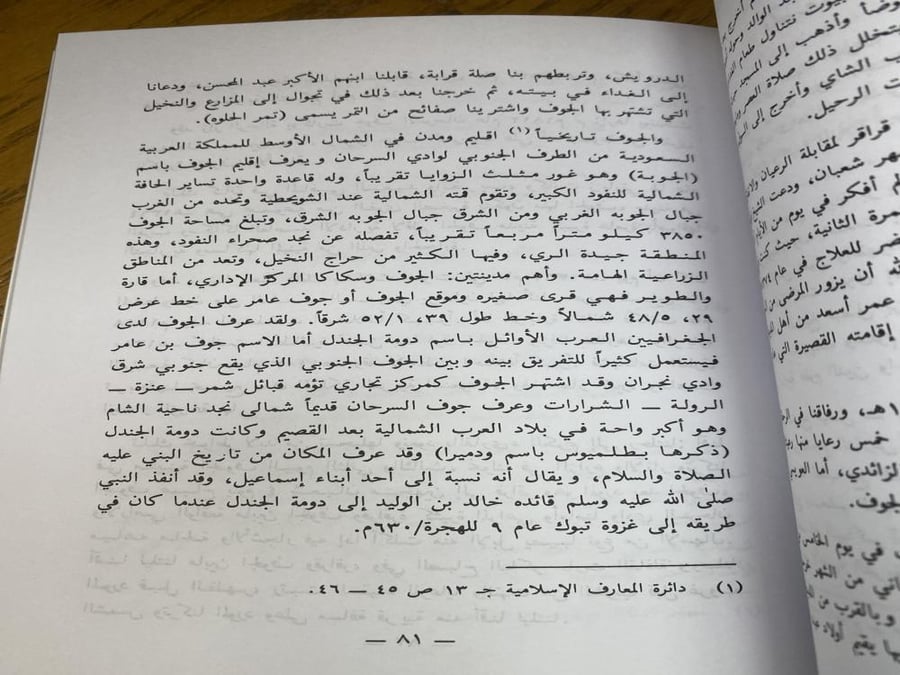 الدرويش، وتربطهم بنا صلة قرابة، قابلنا ابنهم الأكبر عبد المحسن، ودعانا
إلى الغداء في بيته، ثم خرجنا بعد ذلك في تجوال إلى المزارع والنخيل
التي تشتهر بها الجوف واشترينا صفائح من التمر يسمى (تمر الحلوه).
والجوف تاريخياً (١) اقليم ومدن في الشمال الأوسط للمملكة العربية
السعودية من الطرف الجنوبي لوادي السرحان و يعرف إقليم الجوف باسم
(الجوبة) وهو غور مثلث الزوايا تقريباً، وله قاعدة واحدة تساير الحافة
الشمالية للنفود الكبير، وتقوم قته الشمالية عند الشويحطية وتحده من الغرب
جبال الجوبه الغربي ومن الشرق جبال الجوبه الشرق، وتبلغ مساحة الجوف
٣٨٥٠ كيلو متراً مربعاً تقريباً، تفصله عن نجد صحراء النفود، وهذه
المنطقة جيدة الري، وفيها الكثير من حراج النخيل، وتعد من المناطق
الزراعية الهامة. وأهم مدينتين: الجوف وسكاكا المركز الإداري، أما قارة
والطوير فهي قرى صغيره وموقع الجوف أو جوف عامر على خط عرض
٢٩، ٤٨/٥ شمالاً وخط طول ٣٩، ٥٢/١ شرقاً. ولقد عرف الجوف لدى
الجغرافيين العرب الأوائل باسم دومة الجندل أما الاسم جوف بن عامر
فيستعمل كثيراً للتفريق بينه وبين الجوف الجنوبي الذي يقع جنوبي شرق
وادي نجران وقد اشتهر الجوف كمركز تجاري تؤمه قبائل شمر — عنزة —
الرولة — الشرارات وعرف جوف السرحان قديماً شمالى نجد ناحية الشام
وهو أكبر واحة في بلاد العرب الشمالية بعد القصيم وكانت دومة الجندل
(ذكرها بطلميوس باسم ودميرا) وقد عرف المكان من تاريخ البني عليه
الصلاة والسلام، و يقال أنه نسبة إلى أحد أبناء إسماعيل، وقد أنفذ النبي
صلى الله عليه وسلم قائده خالد بن الوليد إلى دومة الجندل عندما كان في
طريقه إلى غزوة تبوك عام ٩ للهجرة/٦٣٠م.
(١) دائرة المعارف الإسلامية جـ ١٣ ص ٤٥ — ٤٦.
— ٨١ —